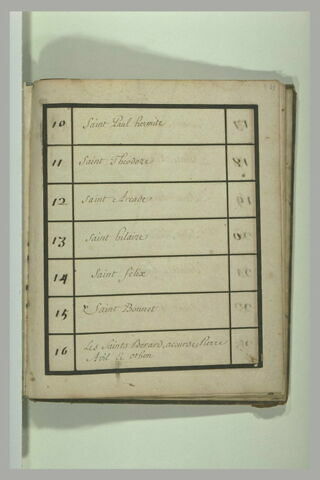 10 Saint Paul hermite
11 Saint Theodoze
12 Saint Arcade
13 Saint hilaire
14 Saint felix
15 Saint Bonnet
16 Les Saints Berard, accurse, Pierre
Avil & othon